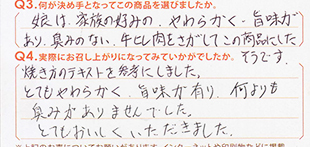 Q3.何が決め手となってこの商品を選びましたか。
娘は、家族の好みの、やわらかく、旨味が
あり、臭みのない、牛ヒレ肉をさがしてこの商品にした
そうです。
Q4.実際にお召し上がりになってみていかがでしたか。
焼き方のテキストを参考にしました。
とてもやわらかく、旨味が有り、何よりも
臭みがありませんでした。
とてもおいしくいただきました。